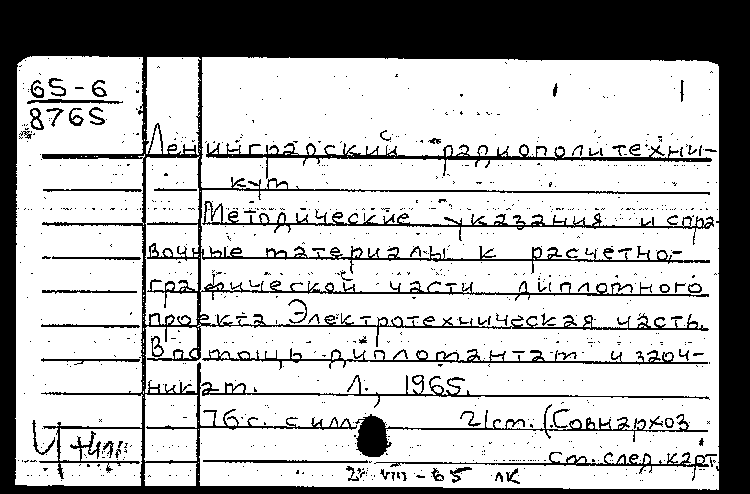 65-6
8765
Ленинградский радиополитехни-
кум.
Методические указания и спра-
вочные материалы к расчетно-
графической части дипломного
проекта. Электротехническая часть.
В помощь дипломантам и заоч-
никам. Л., 1965.
76 с. с илл. 21 см. (Совнархоз
См. след. карт.
VIII-65 ЛК